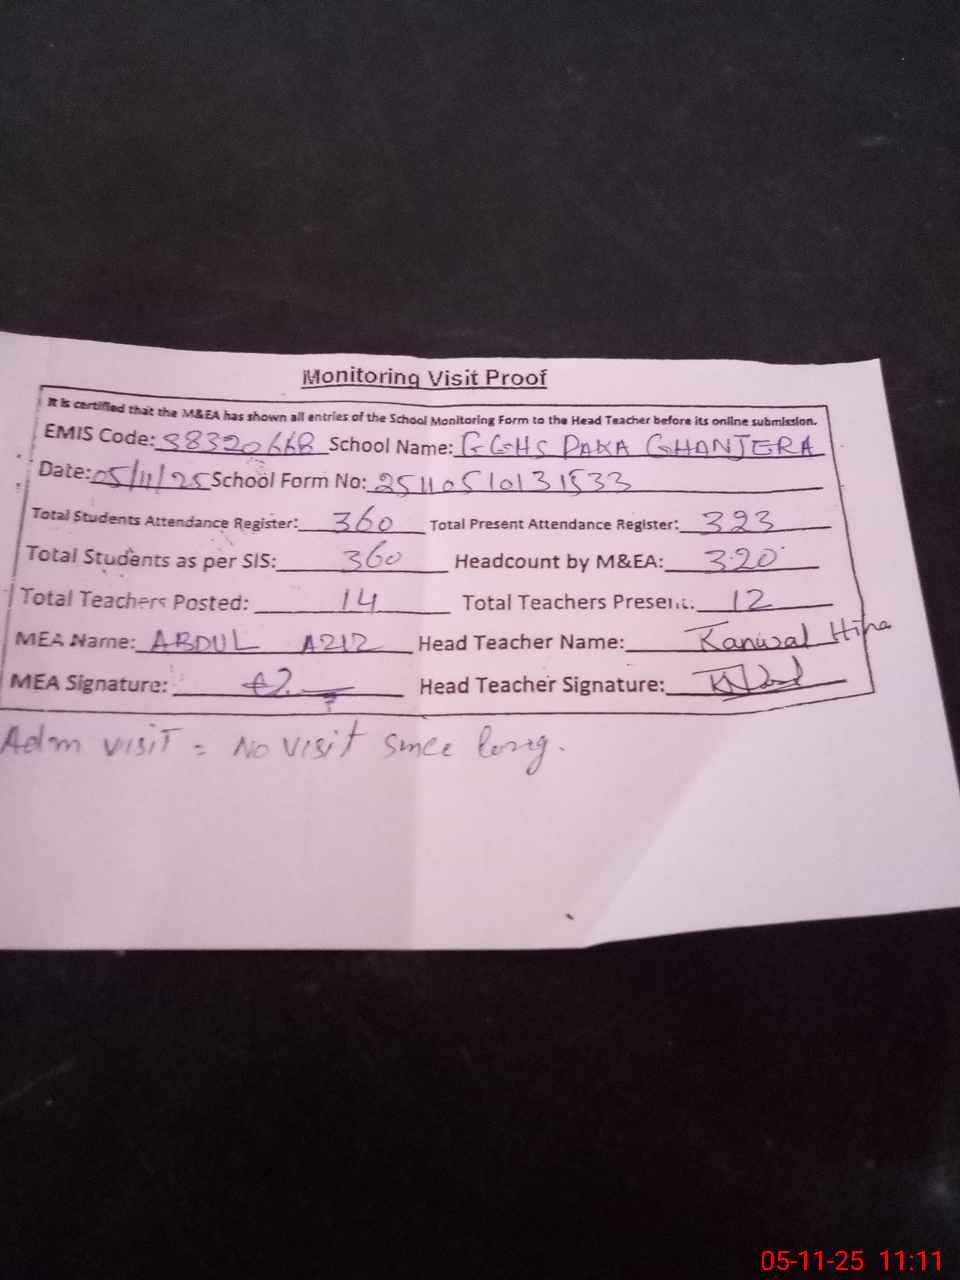 Monitoring Visit Proof
It is certified that the M&EA has shown all entries of the School Monitoring Form to the Head Teacher before its online submission.
EMIS Code: 38320668 School Name: GGHS DAKA GHANJERA
Date: 05/11/25 School Form No: 25110510131533
Total Students Attendance Register: 360 Total Present Attendance Register: 323
Total Students as per SIS: 360 Headcount by M&EA: 320
Total Teachers Posted: 14 Total Teachers Present: 12
MEA Name: ABDUL AZIZ Head Teacher Name: Kanwal Hina
MEA Signature: Head Teacher Signature:
Adm visit = No visit since long.
05-11-25 11:11